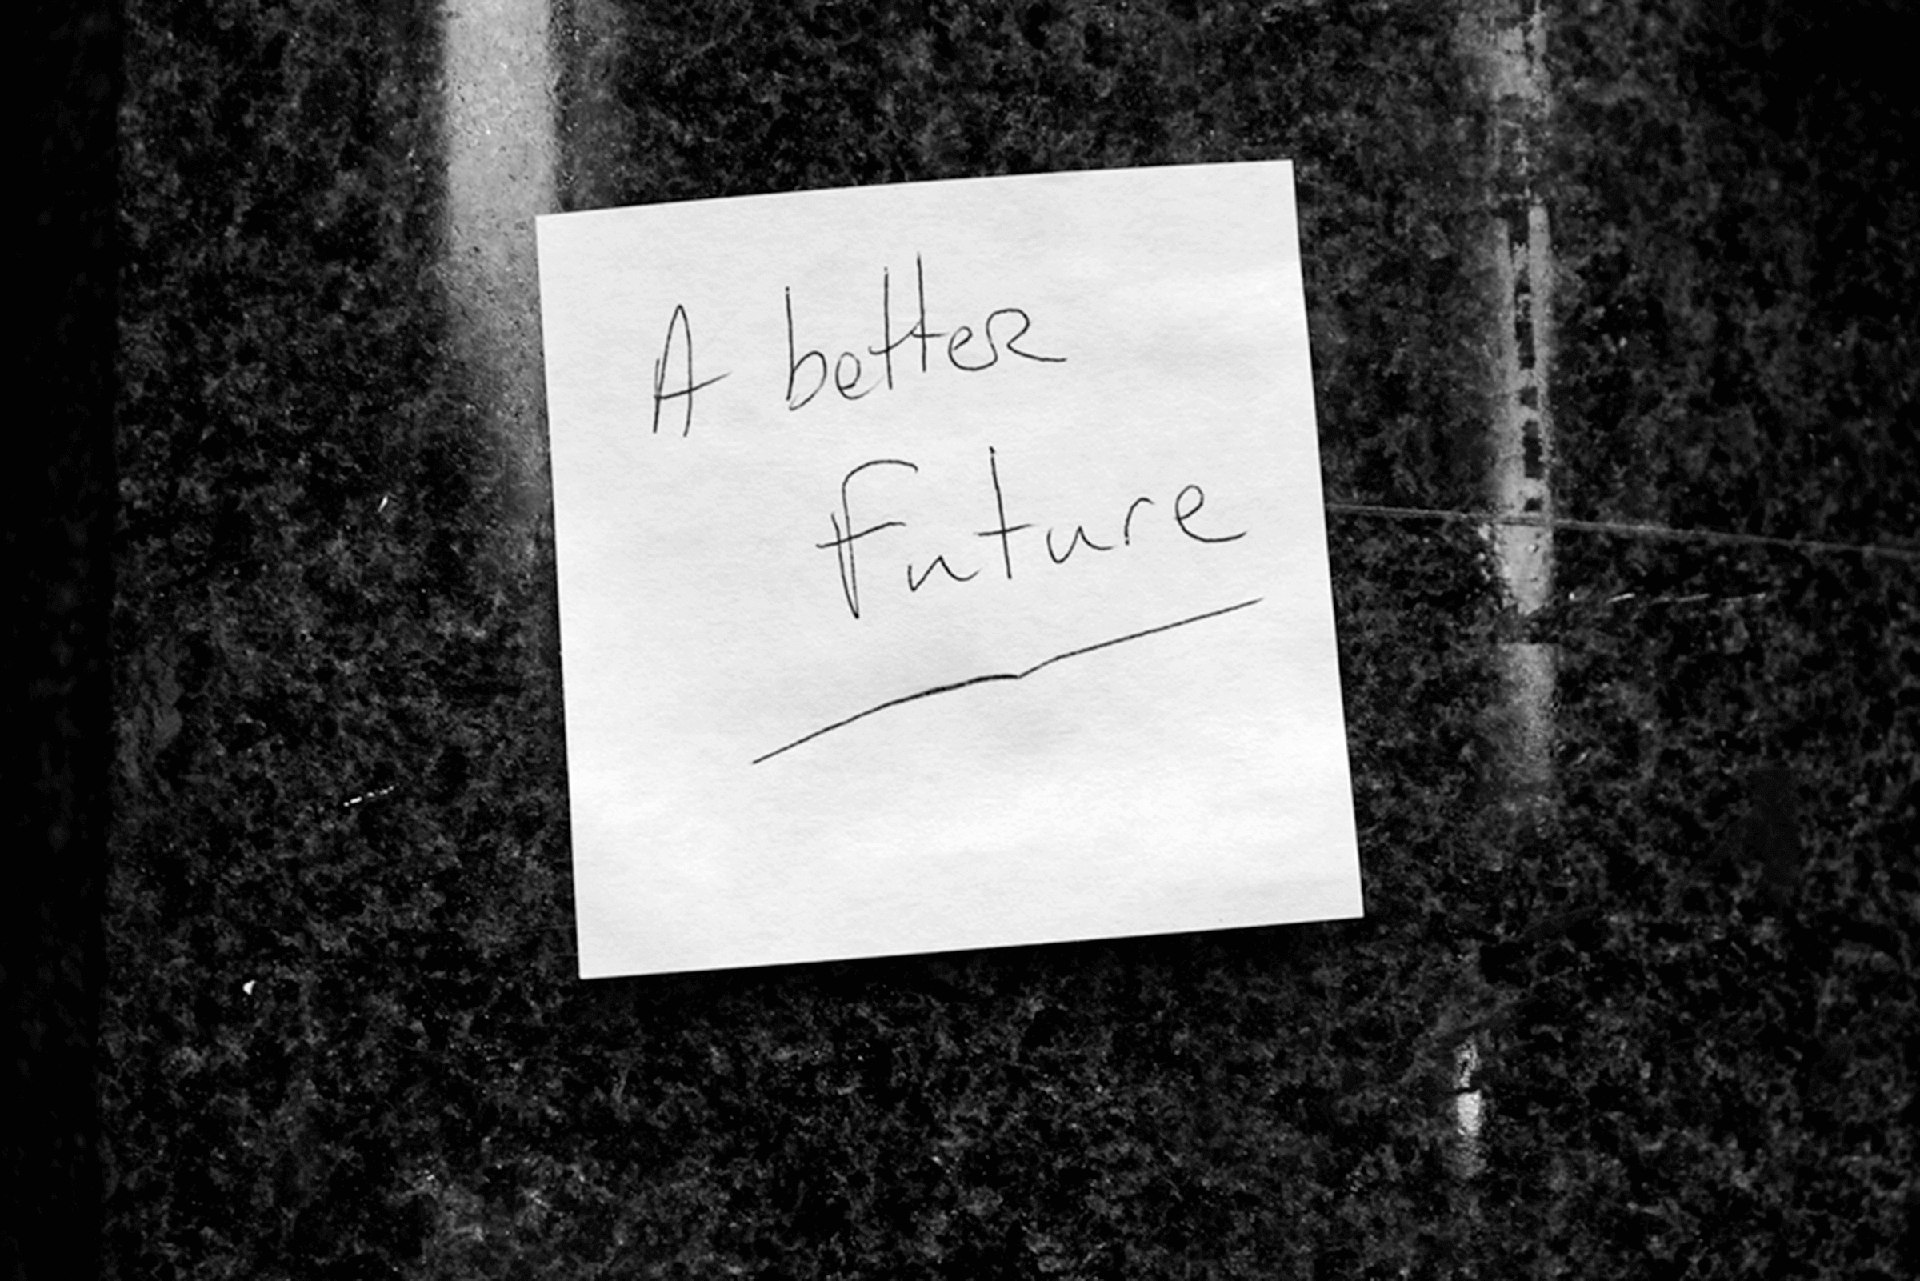 A better
Future